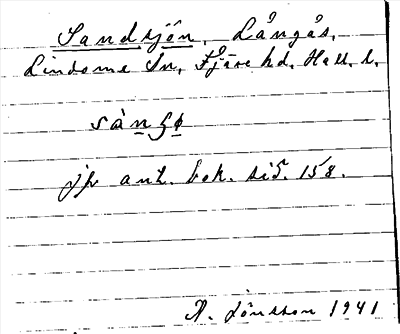 Sandsjön, Långås,
Lindome sn, Fjäre hd. Hall. l.
sàn ʃø
jfr ant. bok. sid. 158.
A. Jönsson 1941